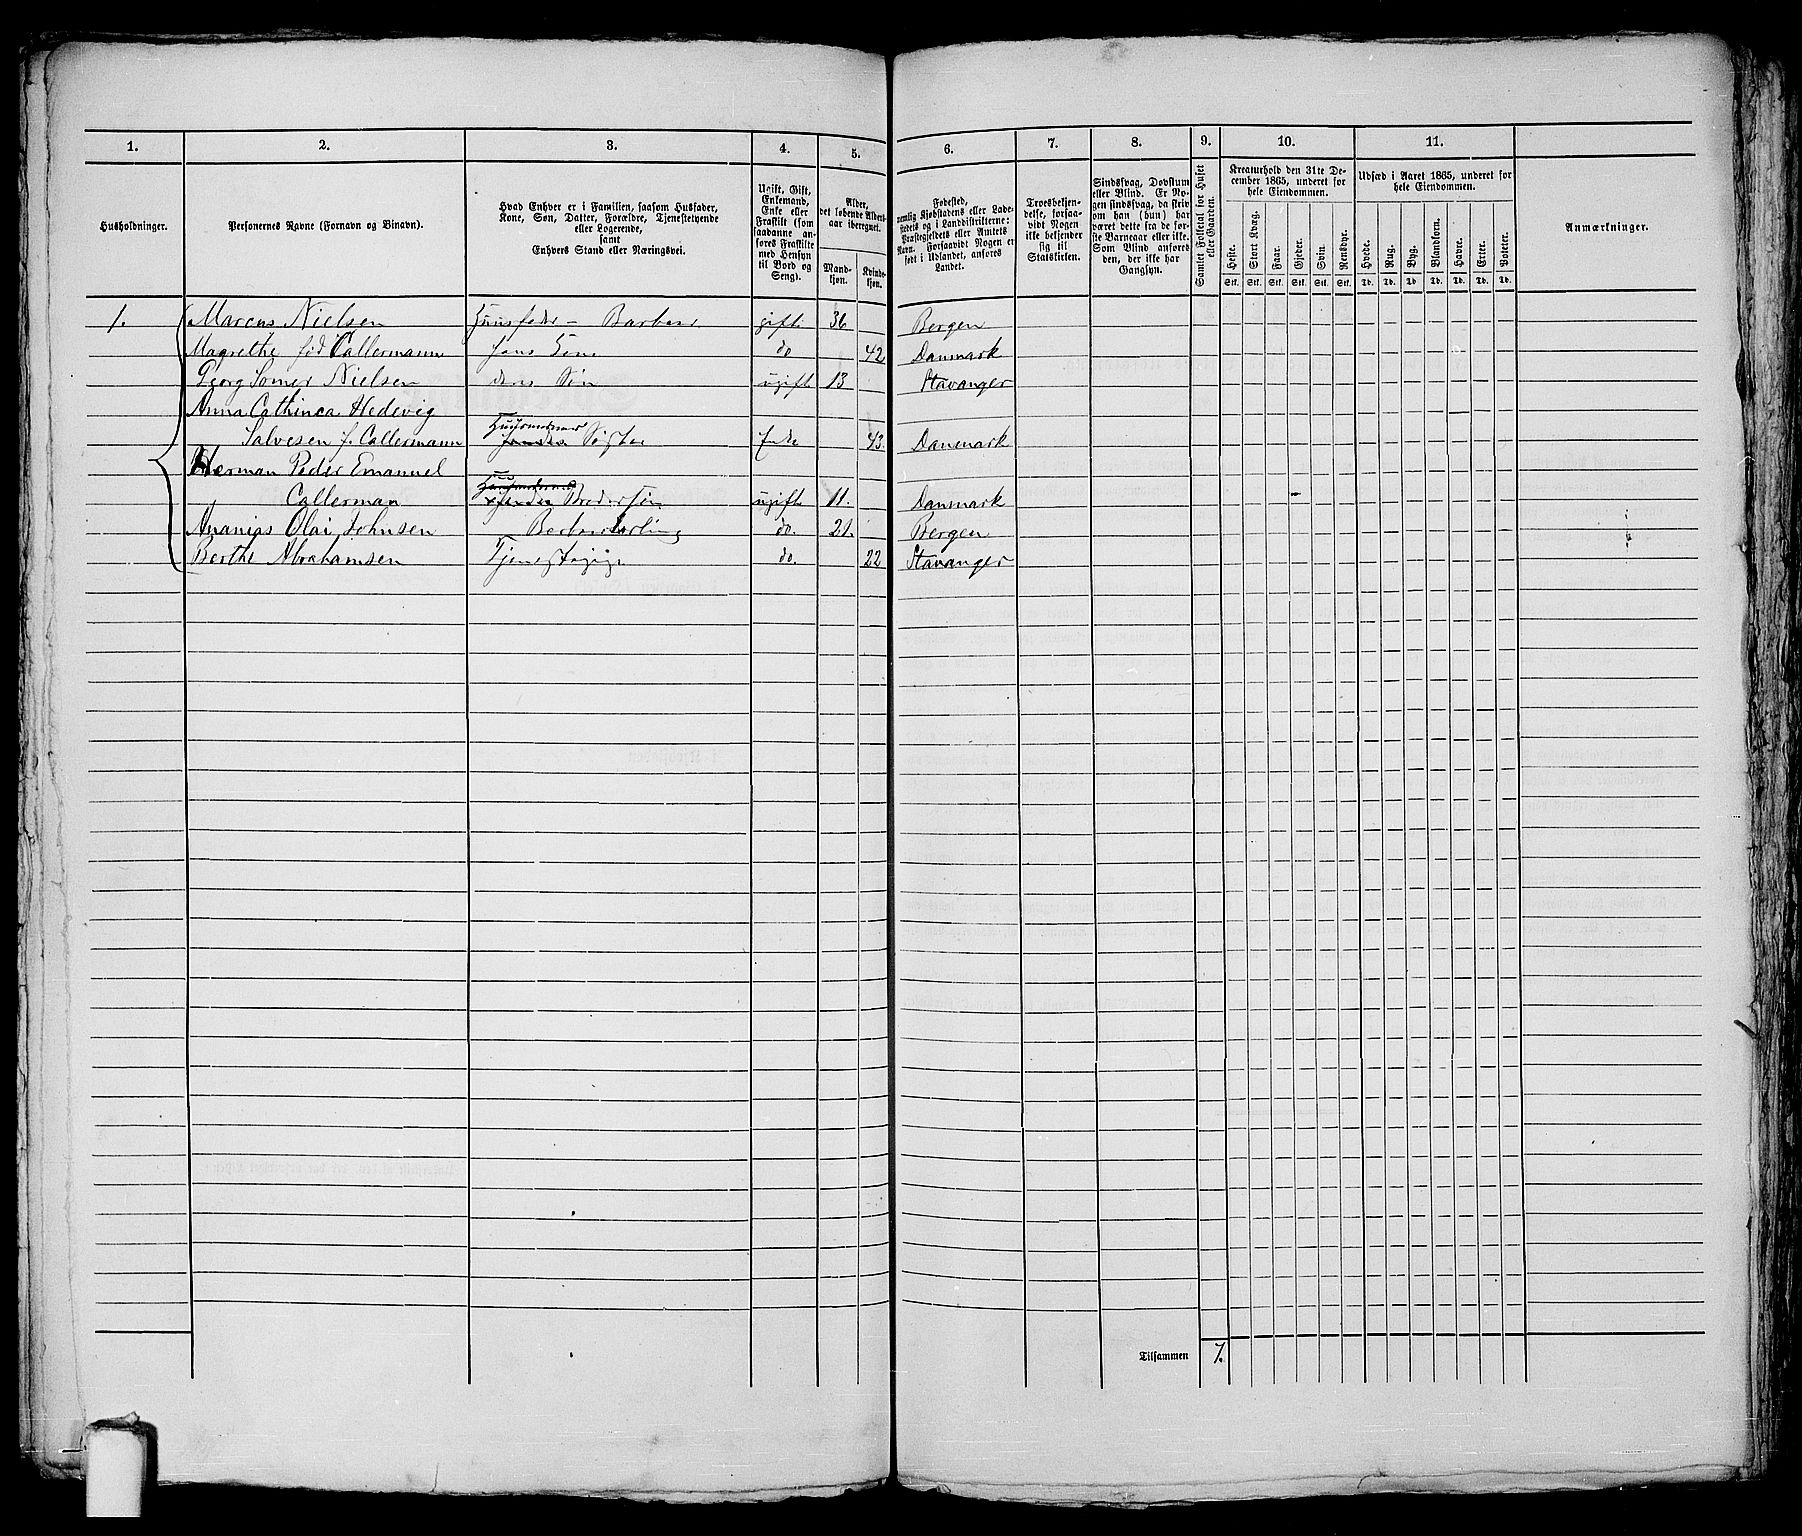 1. 2. 3. 4. 5. 6. 7. 8. 9. 10. 11.
Husholdninger.
Personernes Navne (Fornavn og Binavn).
Hvad Enhver er i Familien, saasom Husfader,
Kone, Søn, Datter, Forældre, Tjenestetyende
eller Logerende,
samt
Enhvers Stand eller Næringsvei.
Ugift, Gift,
Enkemand,
Enke eller
Fraskilt (som
saadanne an-
føres Fraskilte
med Hensyn
til Bord og
Seng).
Alder,
det løbende Alders-
aar iberegnet.
Mand-
kjøn.
Kvinde-
kjøn.
Fødested,
nemlig Kjøbstadens eller Lade-
stedets og i Landdistrikterne:
Præstegjeldets eller Amtets
Navn. Forsaavidt Nogen er
født i Udlandet, anføres
Landet.
Troesbekjen-
delse, forsaa-
vidt Nogen
ikke bekjender
sig til
Statskirken.
Sindssvag, Døvstum
eller Blind. Er No-
gen sindssvag, da skriv
om han (hun) har
været dette fra de før-
ste Barneaar eller ikke.
Som Blind anføres
den, der ikke har
Gangsyn.
Samlet Folketal for Huset
eller Gaarden.
Kreaturhold den 31te De-
cember 1865, underet for
hele Eiendommen.
Heste. Stort Kvæg. Faar. Gjeder. Svin. Rensdyr.
Stk. Stk. Stk. Stk. Stk. Stk.
Udsæd i Aaret 1865, underet for
hele Eiendommen.
Hvede. Rug. Byg. Blandkorn. Havre. Erter. Poteter.
Td. Td. Td. Td. Td. Td. Td.
Anmærkninger.
1. Marcus Nielsen Huusfader - Barbeer gift 36 Bergen
Magrethe fød Callermann hans Kone do 42 Danmark
Georg Somer Nielsen deres Søn ugift 13 Stavanger
Anna Cathinca Hedevig
Salvesen f. Callermann Søster 43. Danmark
Herman Peder Emanuel
Callerman Brodersøn ugift 11. Danmark
Ananias Olai Johnsen Barbeerlærling do. 21. Bergen
Berthe Abrahamsen Tjenestepige do. 22 Stavanger
Tilsammen 7.